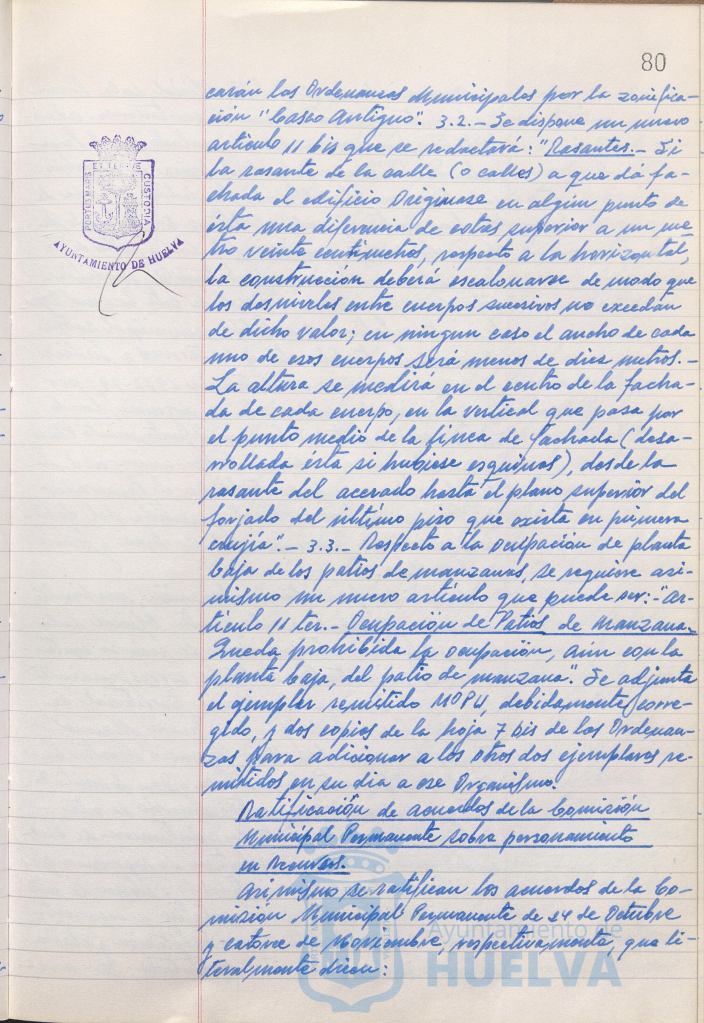 80
carán las Ordenanzas Municipales por la zonifica-
ción "Casco Antiguo". 3.2.- Se dispone un nuevo
artículo 11 bis que se redactará: "Rasantes.- Si
la rasante de la calle (o calles) a que dá fa-
chada el edificio originase en algún punto de
ésta una diferencia de cotas superior a un me-
tro veinte centimetros, respecto a la horizontal,
la construcción deberá escalonarse de modo que
los desniveles entre cuerpos sucesivos no excedan
de dicho valor; en ningun caso el ancho de cada
uno de esos cuerpos será menos de diez metros.-
La altura se medirá en el centro de la facha-
da de cada cuerpo, en la vertical que pasa por
el punto medio de la línea de fachada (desa-
rrollada ésta si hubiese esquinas), desde la
rasante del acerado hasta el plano superior del
forjado del último piso que exista en primera
crujía".- 3.3.- Respecto a la ocupación de planta
baja de los patios de manzanas, se requiere asi-
mismo un nuevo artículo que puede ser:- "Ar-
tículo 11 ter.- Ocupación de Patios de Manzana.-
Queda prohibida la ocupación, aún con la
planta baja, del patio de manzana". Se adjunta
el ejemplar remitido MOPU, debidamente corre-
gido, y dos copias de la hoja 7 bis de las Ordenan-
zas para adicionar a los otros dos ejemplares re-
mitidos en su dia a ese Organismo.
Ratificación de acuerdos de la Comisión
Municipal Permanente sobre personamiento
en Recursos.
Asimismo se ratifican los acuerdos de la Co-
misión Municipal Permanente de 24 de Octubre
y catorce de Noviembre, respectivamente, que li-
teralmente dicen:
PORTUS MARIS ET TERRE CUSTODIA
AYUNTAMIENTO DE HUELVA
Ayuntamiento de
HUELVA